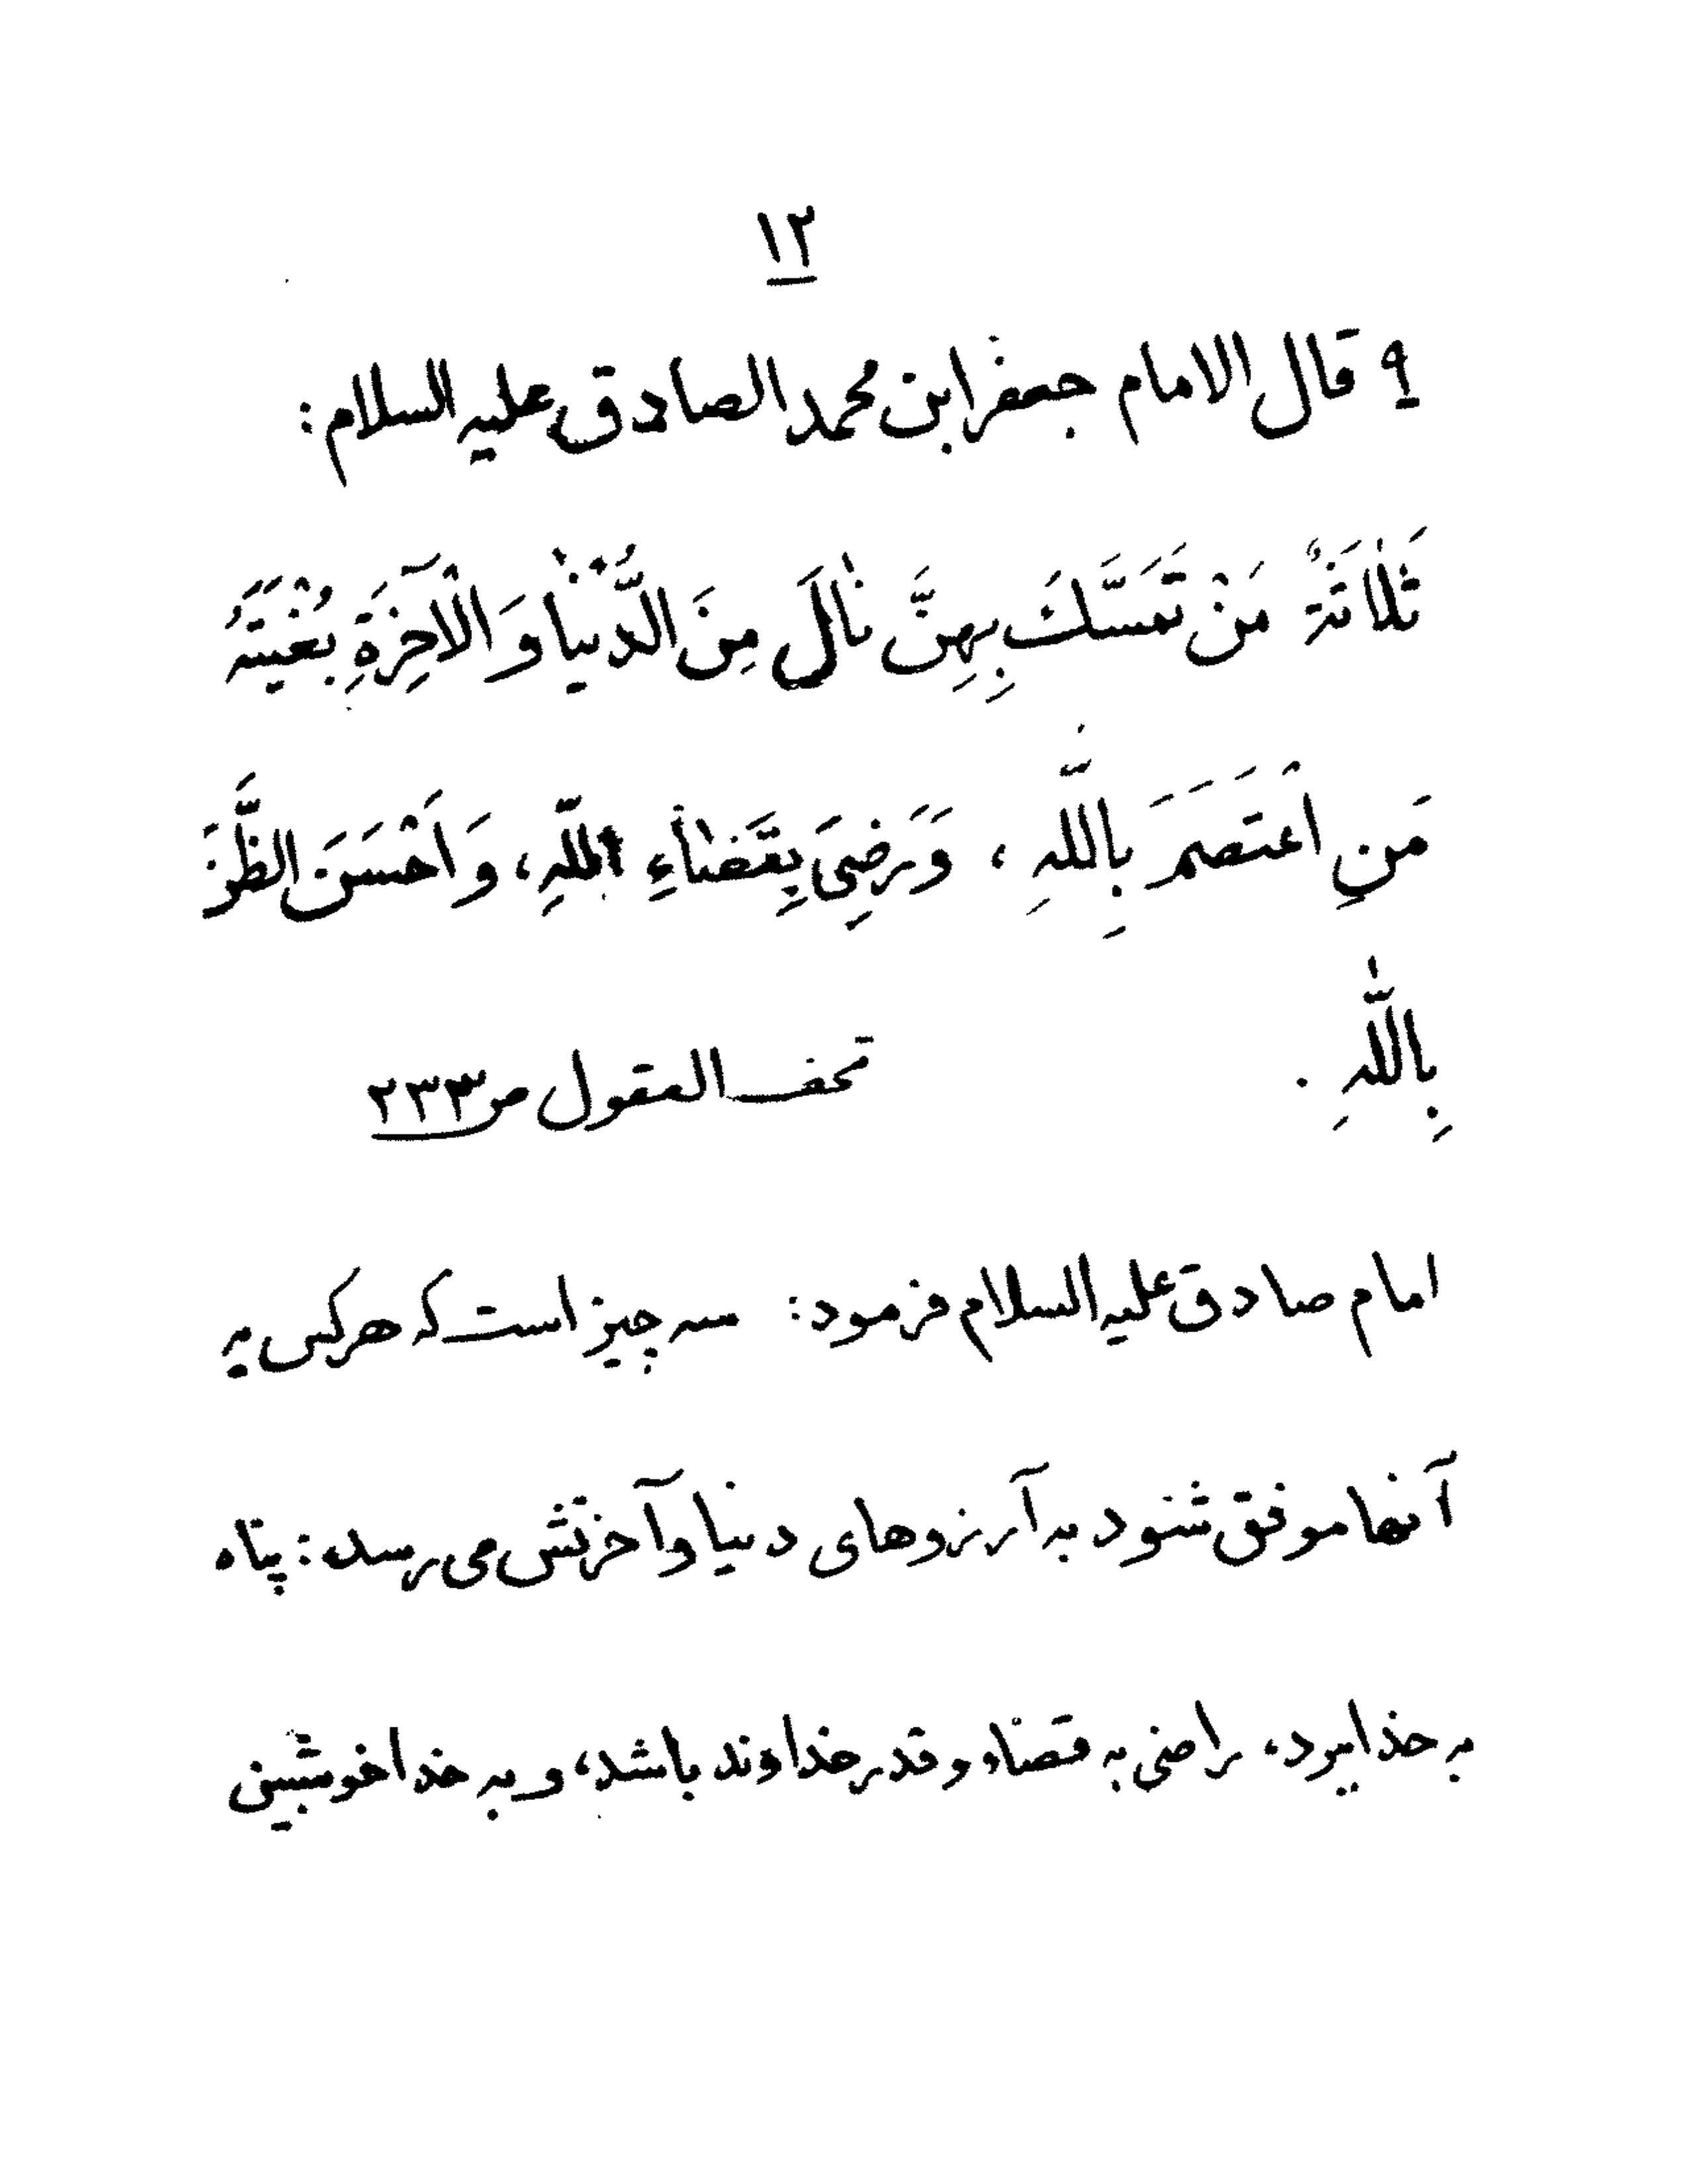 ١٢
٩ قال الامام جعفر ابن محمد الصادق علیه السلام:
ثَلٰاثَةٌ مَنْ تَمَسَّكَ بِهِنَّ نٰالَ مِنَ الدُّنْيٰا وَ الْآخِرَةِ بُغْيَتَهُ
مَنِ اعْتَصَمَ بِاللّٰهِ ، وَ رَضِيَ بِقَضٰاءِ اللّٰهِ، وَ اَحْسَنَ الظَّنَّ
بِاللّٰهِ .
تحف العقول ص ٢٣٣
امام صادق علیه السلام فرمود: سه چیز است که هرکس به
آنها موفق شود به آرزوهای دنیا و آخرتش می رسد: پناه
به خدا برد، راضی به قضاء و قدر خداوند باشد، و به خدا خوشبین